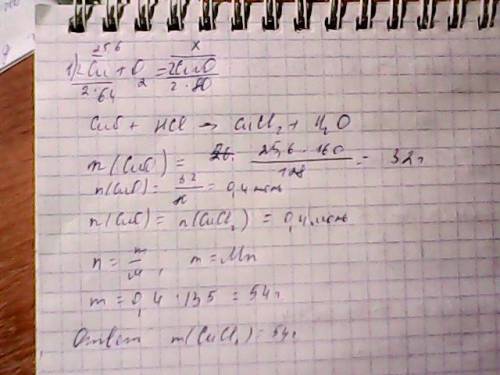 25,6 x
1) 2Cu + O2 = 2CuO
2·64 2·80
CuO + HCl → CuCl2 + H2O
m(CuO) = 25,6·160 / 128 = 32г
n(CuO) = 32 / = 0,4 моль
n(CuO) = n(CuCl2) = 0,4 моль
n = m/M, m = Mn
m = 0,4 · 135 = 54г
Ответ m(CuCl2) = 54г